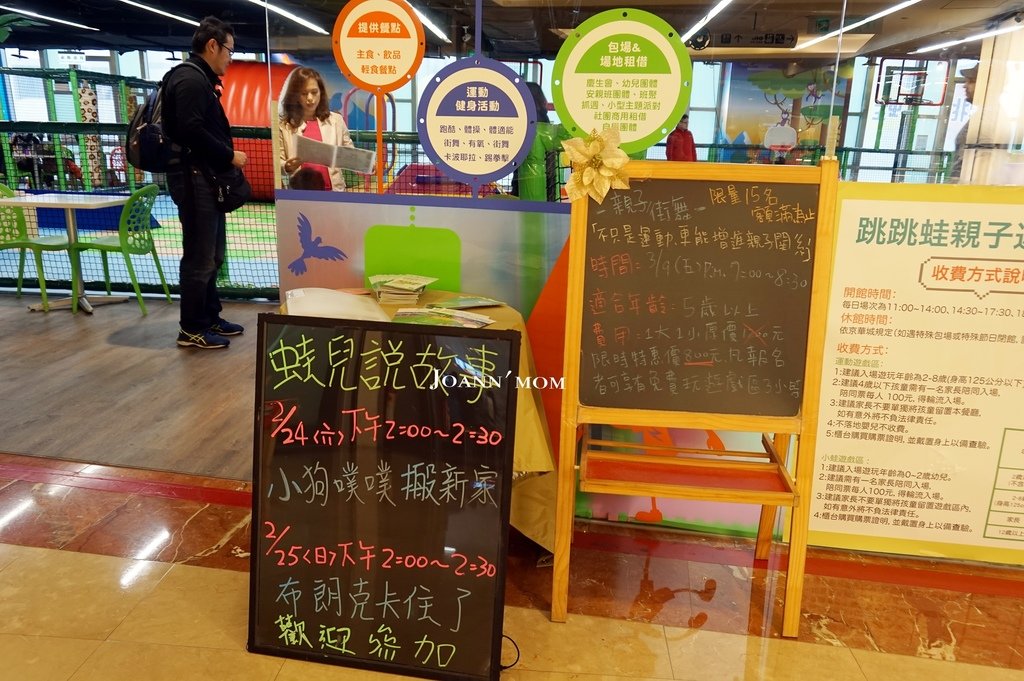 提供餐點
主食、飲品
輕食餐點
運動
健身活動
跑酷、體操、體適能
街舞、有氧、街舞
卡波耶拉、踢拳擊
包場&
場地租借
慶生會、幼兒團體
安親班團體、班聚
抓週、小型主題派對
社團商用租借
自辰團體
親子街舞
限量15名
額滿為止
「不只是運動,更能增進親子關係」
時間: 3/9(五)P.M. 7:00~8:30
適合年齡: 5歲以上
費用: 1大1小原價
元
限時特惠價800元,凡報名
者可享免費玩遊戲區3小時
蛙兒說故事
JOANN'MOM
2/24(六)下午2:00~2:30
小狗噗噗搬新家
2/25(日)下午2:00~2:30
布朗克卡住了
歡迎參加
跳跳蛙親子
收費方式說
開館時間:
每日場次為11:00~14:00、14:30~17:30、18
休館時間:
依京華城規定(如遇特殊包場或特殊節日閉館,
收費方式:
運動遊戲區:
1:建議入場遊玩年齡為2-8歲(身高125公分以下
2:建議4歲以下孩童需有一名家長陪同入場,
陪同票每人 100元, 得輪流入場。
3:建議家長不要單獨將孩童留置本餐廳,
如有意外將不負法律責任。
4:不落地嬰兒不收費。
5:櫃台購買購票證明, 並戴置身上以備查驗。
小蛙遊戲區:
1:建議入場遊玩年齡為0~2歲幼兒。
2:建議需有一名家長陪同入場,
陪同票每人100元, 得輪流入場。
3:建議家長不要單獨將孩童留置遊戲區內,
如有意外將不負法律責任。
4:櫃台購買購票證明, 並戴置身上以備查驗。